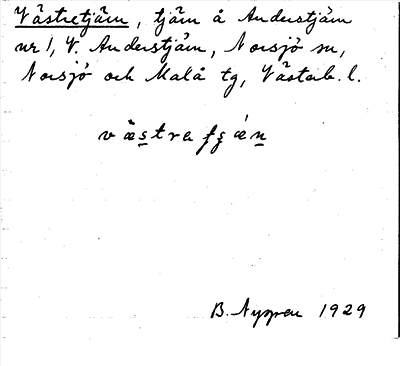 Västretjärn, tjärn å Anderstjärn
nr 1, V. Anderstjärn, Norsjö sn,
Norsjö och Malå tg, Västerb. l.
B. Nygren 1929